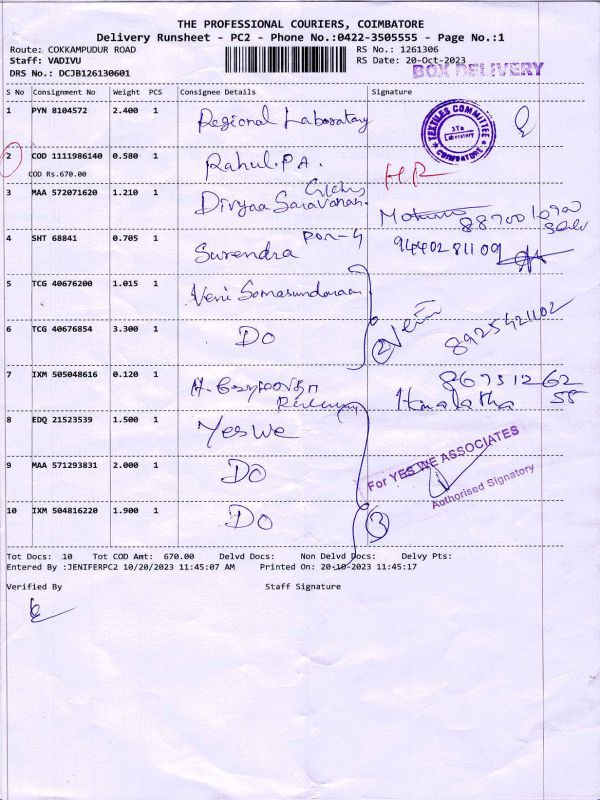 THE PROFESSIONAL COURIERS, COIMBATORE
Delivery Runsheet - PC2 - Phone No.:0422-3505555 - Page No.:1
Route: COKKAMPUDUR ROAD
RS No.: 1261306
Staff: VADIVU
RS Date: 20-Oct-2023
DRS No.: DCJB126130601
BOX DELIVERY
S No Consignment No Weight PCS Consignee Details Signature
1 PYN 8104572 2.400 1 Regional Laboratary
TEXTILES COMMITTEE
Laboratory
COIMBATORE
2 COD 1111986140 0.580 1 Rahul.P.A.
COD Rs.670.00
3 MAA 572071620 1.210 1 Divyaa Saravanan.
4 SHT 68841 0.705 1 Surendra
9440281109
5 TCG 40676200 1.015 1 Veni Somasundaram
6 TCG 40676854 3.300 1 DO
2 Veni 8925421102
7 IXM 505048616 0.120 1
Hemalatha
8 EDQ 21523539 1.500 1 Yes We
For YES WE ASSOCIATES
9 MAA 571293831 2.000 1 DO
Authorised Signatory
10 IXM 504816220 1.900 1 DO
3
Tot Docs: 10 Tot COD Amt: 670.00 Delvd Docs: Non Delvd Docs: Delvy Pts:
Entered By :JENIFERPC2 10/20/2023 11:45:07 AM Printed On: 20-10-2023 11:45:17
Verified By Staff Signature